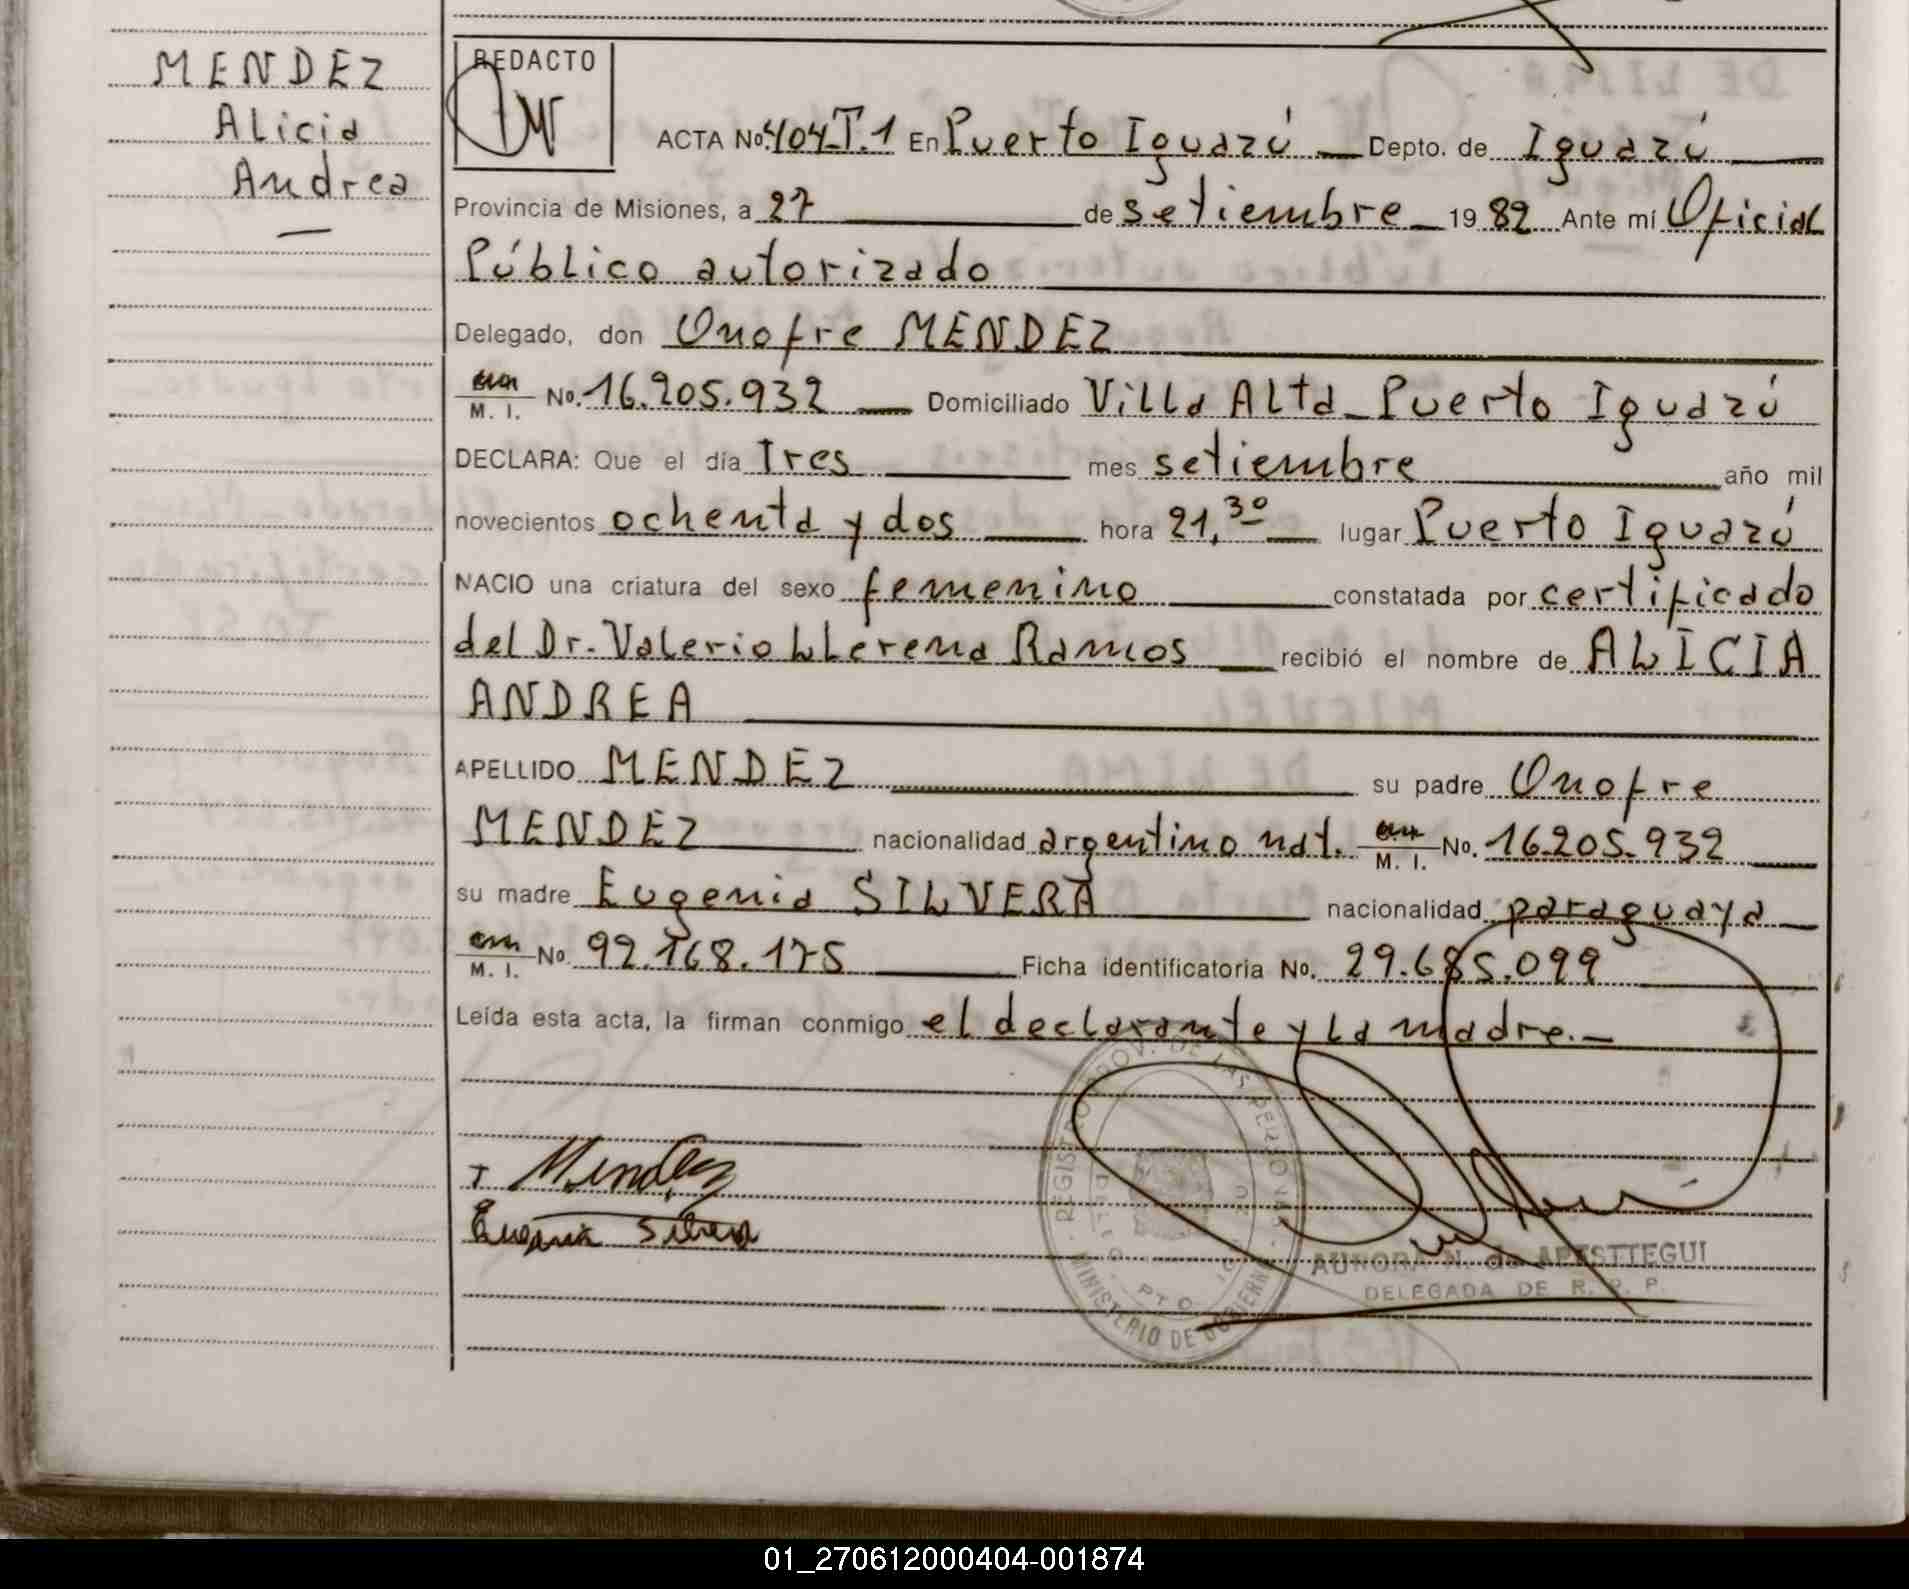 MENDEZ
Alicia
Andrea
REDACTO
ACTA No. 404-T.1 En Puerto Iguazú Depto. de Iguazú
Provincia de Misiones, a 27 de setiembre 1982 Ante mí Oficial
Público autorizado
Delegado, don Onofre MENDEZ
M. I. No. 16.205.932 Domiciliado Villa Alta - Puerto Iguazú
DECLARA: Que el día Tres mes setiembre año mil
novecientos ochenta y dos hora 21,30 lugar Puerto Iguazú
NACIO una criatura del sexo femenino constatada por certificado
del Dr. Valerio Llerena Ramos recibió el nombre de ALICIA
ANDREA
APELLIDO MENDEZ su padre Onofre
MENDEZ nacionalidad argentino nat. M. I. No. 16.205.932
su madre Eugenia SILVERA nacionalidad paraguaya
M. I. No. 92.168.175 Ficha identificatoria No. 29.685.099
Leída esta acta, la firman conmigo el declarante y la madre.-
REGISTRO PROV. DE LAS PERSONAS
MINISTERIO DE GOBIERNO
Mendez
Eugenia Silvera
AURORA N. de APESTTEGUI
DELEGADA DE R. P. P.
01_270612000404-001874